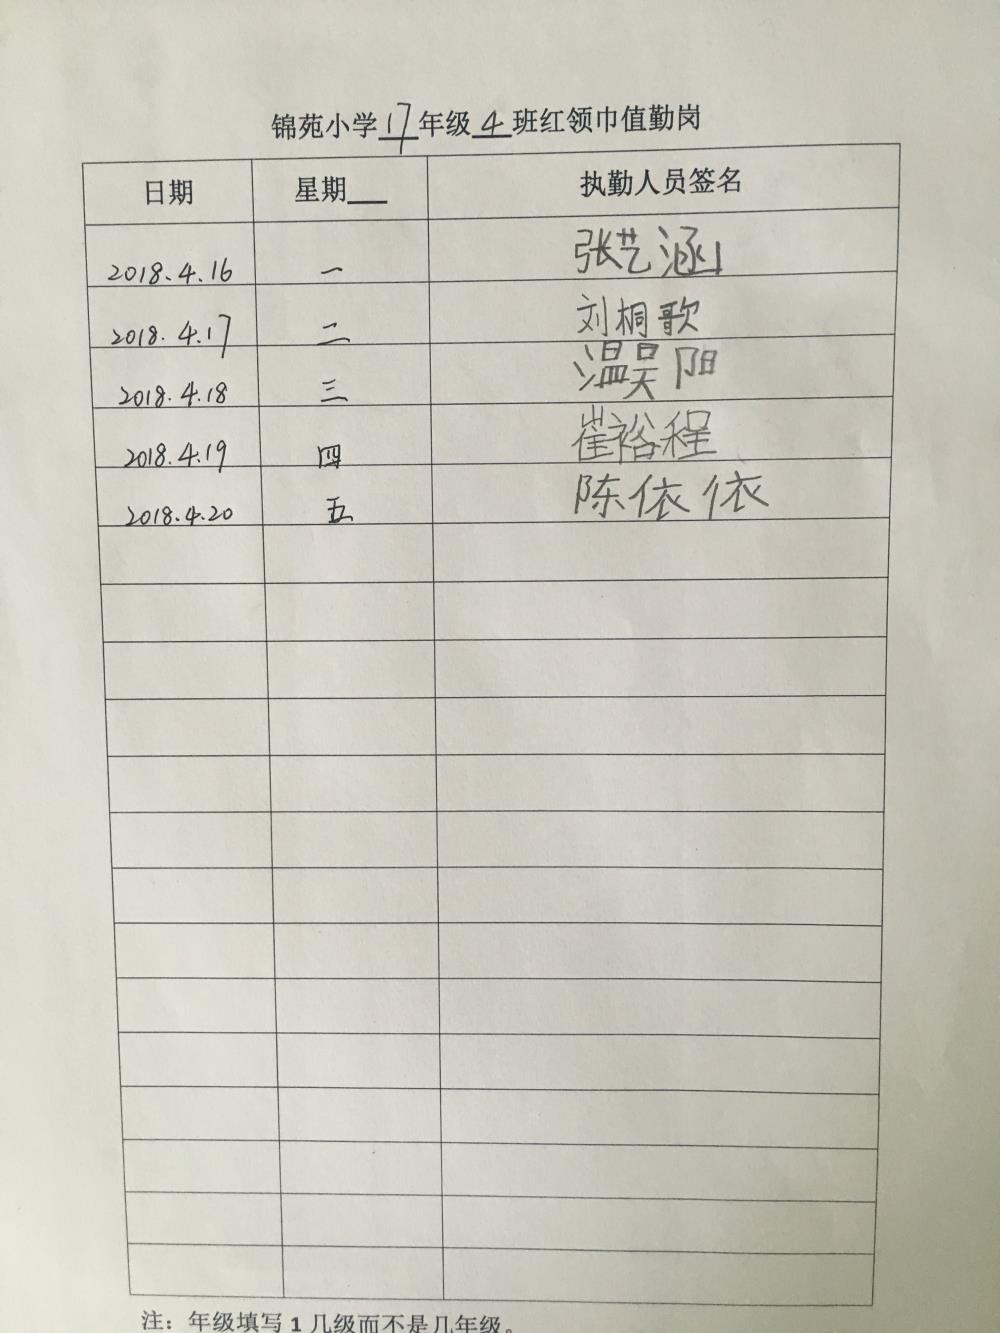 锦苑小学17年级4班红领巾值勤岗
日期 星期___ 执勤人员签名
2018.4.16 一 张艺涵
2018.4.17 二 刘桐歌
2018.4.18 三 温昊阳
2018.4.19 四 崔裕程
2018.4.20 五 陈依依
注：年级填写1几级而不是几年级。